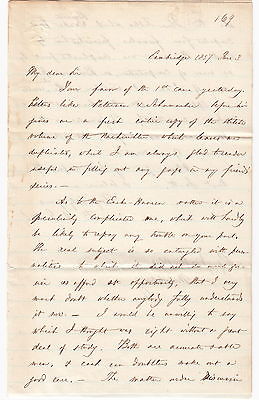 169
Cambridge 1857 Jan 3
My dear Sir
Your favor of the 1st came yesterday.
Peters like Petersen & Schumacher before him
gives me a fresh entire copy of the
volume of the Nachrichten which leaves me
duplicates, which I am always glad to render
useful in filling out any gaps in my friends'
series. —
As to the Encke-Hansen matter it is a
peculiarly complicated one, which will hardly
be likely to repay any trouble on your part,
the real subject is so entangled with per-
sonalities. In it did not give
us afford an opportunity, But I very
much doubt whether anybody fully understands
it now — I would be unwilling to say
which I thought was right without a great
deal of study. Both are accurate & able
men, & each can doubtless make out a
good case, — The matter under discussion